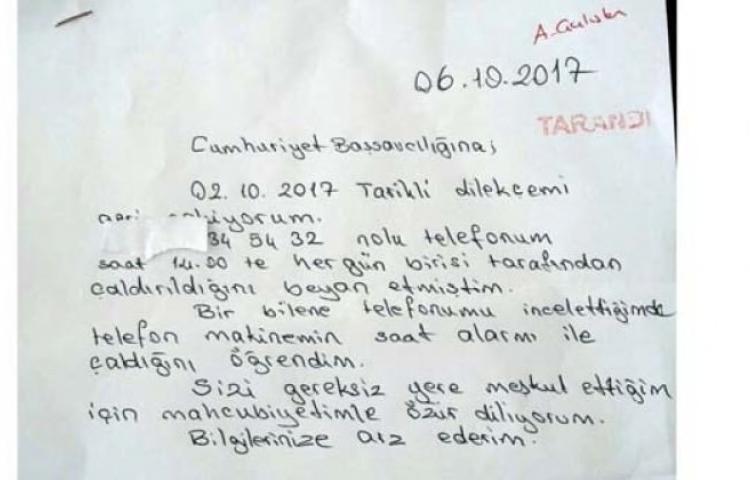 06.10.2017
TARANDI
Cumhuriyet Başsavcılığına;
02.10.2017 Tarihli dilekçemi
34 54 32 nolu telefonum
saat 14.00 te her gün birisi tarafından
çaldırıldığını beyan etmiştim.
Bir bilene telefonumu incelettiğimde
telefon makinemin saat alarmı ile
çaldığını öğrendim.
Sizi gereksiz yere meşkul ettiğim
için mahcubiyetimle özür diliyorum.
Bilgilerinize arz ederim.